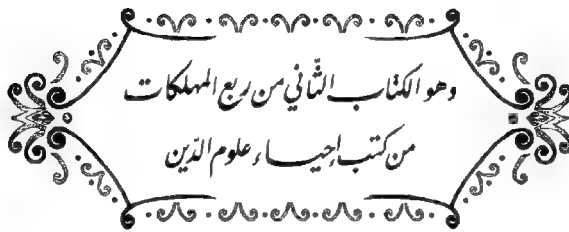 وهو الكتاب الثّاني من ربع المهلكات
من كتب إحياء علوم الدّين